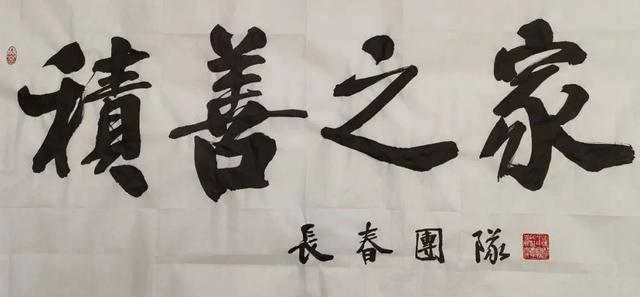 積善之家
長春團隊